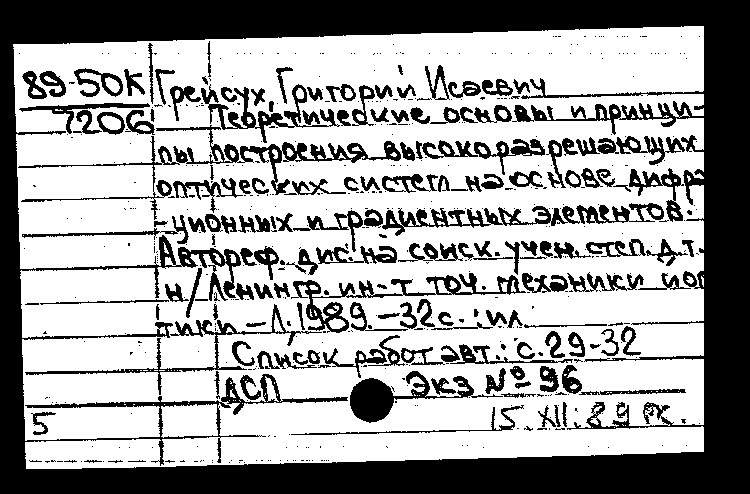 89-50К Грейсух, Григорий Исаевич
7206 Теоретические основы и принци-
пы построения высокоразрешающих
оптических систем на основе дифра
-ционных и градиентных элементов:
Автореф. дис. на соиск. учен. степ. д.т.
н/Ленингр. ин-т точ. механики и оп
тики - Л., 1989. - 32 с. : ил
Список работ авт.: с. 29-32
ДСП Экз № 96
5 15. XII. 89